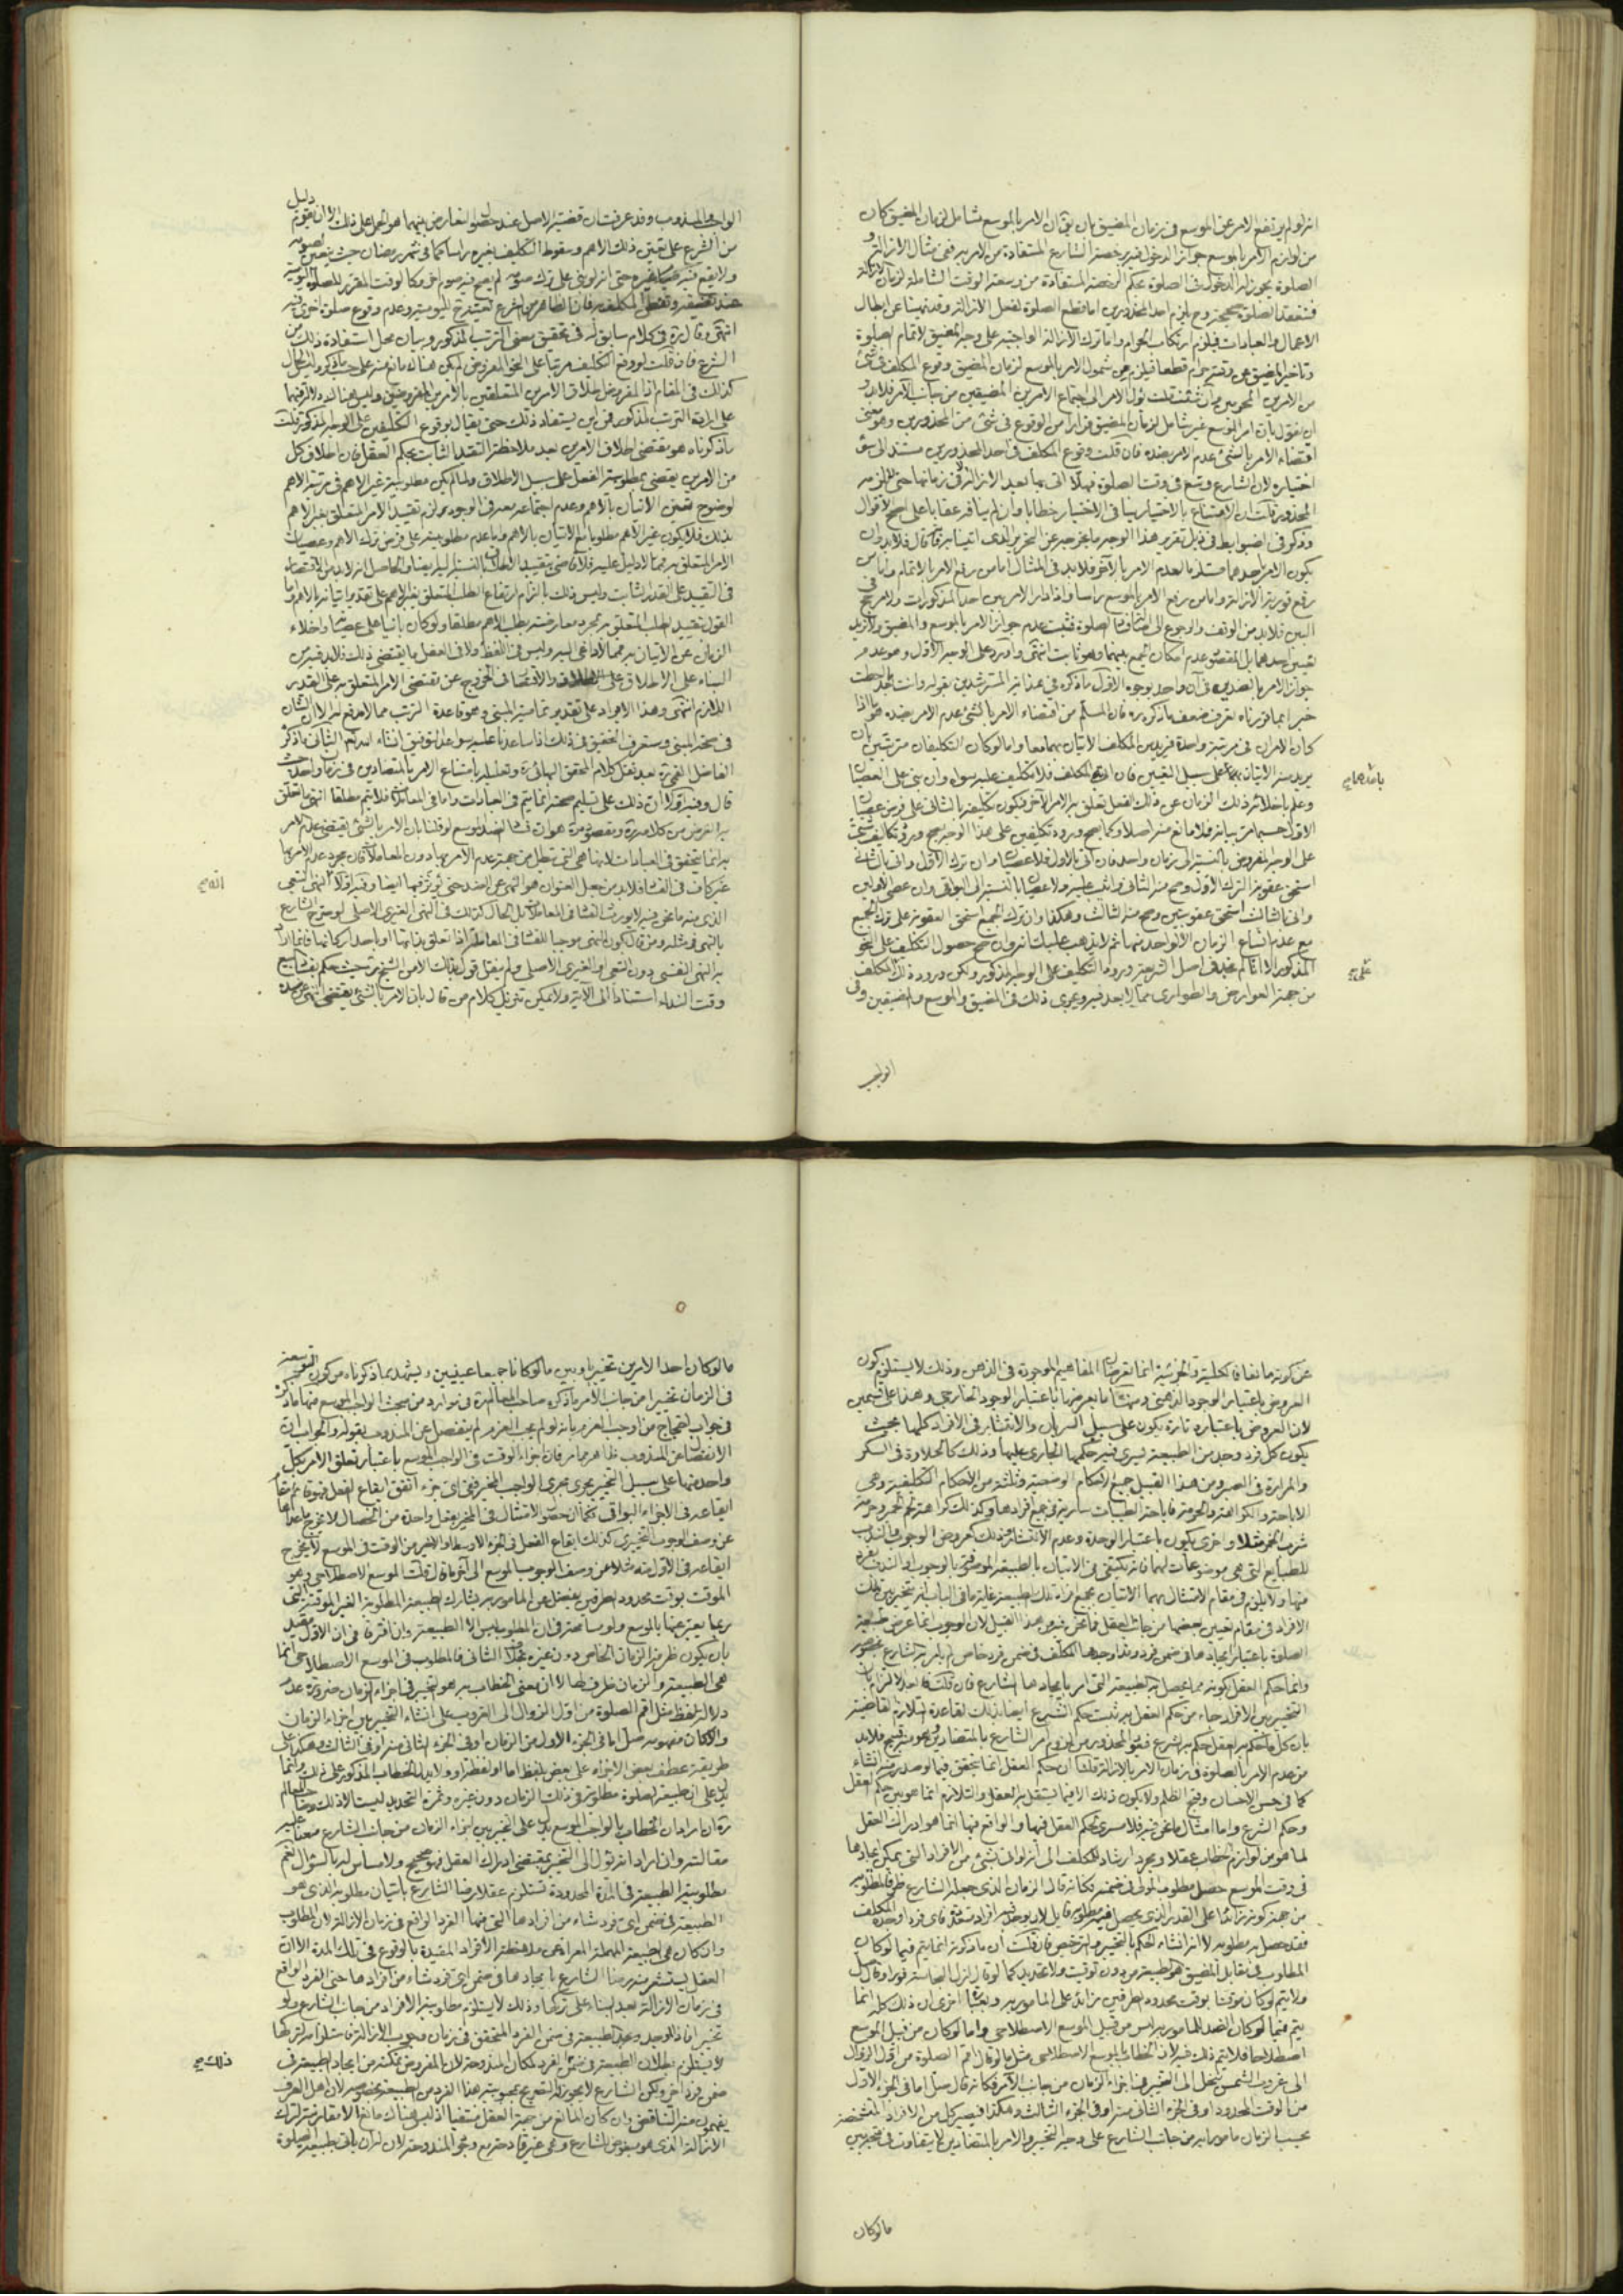 انه لو لم يرتفع الامر عن الموسع في زمان المضيق بان يق ان الامر بالموسع شامل لزمان المضيق كان
من لوازم الامر بالموسع جواز الدخول فيه رخصة الشارع المستفادة من الامر به ففي مثال الازالة و
الصلوة يجوز له الدخول في الصلوة بحكم الرخصة المستفادة من وسعة الوقت الشاملة لزمان الازالة
فتنعقد الصلوة صحيحة وح يلزم احد المحذورين اما قطع الصلوة لفعل الازالة وقد نهينا عن ابطال
الاعمال والعبادات فيلزم ارتكاب الحرام واما ترك الازالة الواجبة على وجه المضيق لاتمام الصلوة
وتاخير المضيق حرام قطعا فيلزم من شمول الامر بالموسع لزمان المضيق وقوع المكلف في شئ
من الامرين المحرمين وان شئت قلت يؤل الامر الى اجتماع الامرين المضيقين من جانب الآمر فلابد و
ان نقول بان امر الموسع غير شامل لزمان المضيق فرارا من الوقوع في شئ من المحذورين وهو معنى
اقتضاء الامر بالشئ عدم الامر بضده فان قلت وقوع المكلف في احد المحذورين مستند الى سوء
اختياره لان الشارع وسع في وقت الصلوة فهلا اتى بها بعد الازالة لا في زمانها حتى يلزمه
المحذور قلت ان الامتناع بالاختيار ينافي الاختيار خطابا وان لم ينافه عقابا على اصح الاقوال
وذكر في الضوابط في ذيل تقرير هذا الوجه ما يخرجه عن التحرير الذى اتينا به فانه قال فلابد ان
يكون الامر باحدهما مستلزما لعدم الامر بالآخر فلابد في المثال اما من رفع الامر بالاتمام واما من
رفع فورية الازالة واما من رفع الامر بالموسع راسا واذا دار الامر بين احد المذكورات ولا مرجح في
البين فلابد من الوقف والرجوع الى فساد الصلوة فثبت عدم جواز الامر بالموسع والمضيق ولا نريد
تعيين احدهما بل المقصود عدم امكان الجمع بينهما وهو ثابت انتهى واورد على الوجه الاول وهو عدم
جواز الامر بالضدين في آن واحد بوجوه الاول ما ذكره في هداية المسترشدين بقوله وانت بعد ما احطت
خبرا بما قررناه تعرف ضعف ما ذكره فان المسلم من اقتضاء الامر بالشئ عدم الامر بضده هو ما اذا
كان الامران في مرتبة واحدة فيريد من المكلف الاتيان بهما معا واما لو كان التكليفان مترتبين بان
يريد منه الاتيان باحدهما على سبيل التعيين فان اتى به المكلف فلا تكليف عليه سواه وان بنى على العصيان
وعلم باخلائه ذلك الزمان عن ذلك الفعل تعلق به الامر الآخر فيكون تكليفه بالثاني على فرض عصيان
الاول حسبما مر بيانه فلا مانع منه اصلا وكما يصح ورود تكليفين على هذا الوجه يصح ورود تكاليف شتى
على الوجه المفروض بالنسبة الى زمان واحد فان اتى بالاول فلا عصيان وان ترك الاول واتى بالثاني
استحق عقوبة لترك الاول وصح منه الثاني واثيب عليه ولا عصيان بالنسبة الى البواقي وان عصى الاولين
واتى بالثالث استحق عقوبتين وصح منه الثالث وهكذا وان ترك الجميع استحق العقوبة على ترك الجميع
مع عدم اتساع الزمان الا لواحد منها ثم لا يذهب عليك انه وان صح حصول التكليف على النحو
المذكور الا انا لم نجد في اصل الشريعة ورود التكليف على الوجه المذكور ولكن ورود ذلك على المكلف
من جهة العوارض والطوارى مما لا بعد فيه ويجرى ذلك في المضيق والموسع والمضيقين وفى
الواجب
الواجب والمندوب وقد عرفت ان قضية الاصل عند حصول التعارض بينهما هو الحمل على ذلك الا ان يقوم دليل
من الشرع على تعين ذلك الاهم وسقوط التكليف بغيره راسا كما في شهر رمضان حيث يتعين لصومه
ولا يقع فيه صيام غيره حتى انه لو بنى على ترك صومه لم يصح فيه صوم آخر وكالوقت المقرر للصلوة اليومية
عند تضيقه وتفطن المكلف به فان الظاهر من الشرع تعينه ح لليومية وعدم وقوع صلوة اخرى فيه
انتهى وقال ره في كلام سابق له في تحقيق معنى الترتب المذكور وبيان محل استفادة ذلك من
الشرع فان قلت لو وقع التكليف مرتبا على النحو المفروض لم يكن هناك مانع منه على حسب ما ذكر وليس الحال
كذلك في المقام اذ المفروض اطلاق الامرين المتعلقين بالامرين المفروضين وليس هناك دلالة فيهما
على ارادة الترتيب المذكور فمن اين يستفاد ذلك حتى يقال بوقوع التكليفين على الوجه المذكور قلت
ما ذكرناه هو مقتضى اطلاق الامرين بعد ملاحظة التقييد الثابت بحكم العقل فان اطلاق كل
من الامرين يقتضى مطلوبية الفعل على سبيل الاطلاق ولما لم يكن مطلوبية غير الاهم في مرتبة الاهم
لوضوح تعين الاتيان بالاهم وعدم اجتماعه معه في الوجود لزم تقييد الامر المتعلق بغير الاهم
بذلك فلا يكون غير الاهم مطلوبا مع الاتيان بالاهم واما عدم مطلوبيته على فرض ترك الاهم وعصيان
الامر المتعلق به فمما لا دليل عليه فلا قاضى بتقييد الاطلاق بالنسبة اليه ايضا والحاصل انه لابد من الاقتصار
في التقييد على القدر الثابت وليس ذلك الا بالتزام ارتفاع الطلب المتعلق بغير الاهم على تقدير اتيانه بالاهم واما
القول بتقييد الطلب المتعلق به بمجرد معارضته بطلب الاهم مطلقا ولو كان بانيا على عصيانه واخلاء
الزمان عن الاتيان به فمما لا داعى اليه وليس في اللفظ ولا في العقل ما يقتضى ذلك فلابد فيه من
البناء على الاطلاق والاقتصار في الخروج عن مقتضى الامر المتعلق به على القدر
اللازم انتهى وهذا الايراد على تقدير تمامية المبنى وهو قاعدة الترتب مما لا مدفع له الا ان الشان
في صحة المبنى وستعرف التحقيق في ذلك اذا ساعدنا عليه سواعد التوفيق انشاء الله تع الثاني ما ذكره
الفاضل القمى ره بعد نقل كلام المحقق البهائى ره وتعليله بامتناع الامر بالمتضادين في زمان واحد حيث
قال وفيه اولا ان ذلك على تسليم صحته انما يتم في العبادات واما في المعاملات فلا يتم مطلقا انتهى ما تعلق
به الغرض من كلامه ره ومقصوده ره هو ان فساد الضد الموسع لو قلنا بان الامر بالشئ يقتضى عدم الامر
به انما يتحقق في العبادات لانها هي التى تبطل من جهة عدم الامر بها دون المعاملات فان مجرد عدم الامر بها
غير كاف في الفساد فلابد من جعل العنوان هو النهى عن الضد حتى يؤثر فيها ايضا وفيه اولا ان النهى التبعى
الذى منه ما نحن فيه لا يورث الفساد في المعاملات بل الحال كذلك في النهى الغيرى الاصلى لو صرح الشارع
بالنهى في مثله ومن قال بكون النهى موجبا للفساد في المعاملات اذا تعلق بذاتها او باحد اركانها فانما اراد
به النهى النفسى دون التبعى او الغيرى الاصلى ولم ينقل قول بذلك الا من الشيخ ره حيث حكم بفساد البيع
وقت النداء استنادا الى الآية ولا يمكن تنزيل كلام من قال بان الامر بالشئ يقتضى النهى عن ضده
عن كونه مانعا فالكلية والجزئية انما تعرضان المفاهيم الموجودة في الذهن وذلك لا يستلزم كون
العروض باعتبار الوجود الذهنى ومنها ما يعرضها باعتبار الوجود الخارجى وهذا على قسمين
لان العروض باعتباره تارة يكون على سبيل السريان والانتشار في الافراد كلها بحيث
يكون كل فرد وجد من الطبيعة يسرى فيه حكمها الجارى عليها وذلك كالحلاوة في السكر
والمرارة في الصبر ومن هذا القبيل جميع الاحكام الوضعية وثلثة من الاحكام التكليفية وهى
الاباحة والكراهة والحرمة فاباحة الطيبات سارية في جميع افرادها وكذلك كراهة لحم الحمر وحرمة
شرب الخمر مثلا واخرى يكون باعتبار الوحدة وعدم الانتشار وذلك كعروض الوجوب والندب
للطبايع التى هى موضوعات لهما فانه يكتفى في الاتيان بالطبيعة الموصوفة بالوجوب او الندب بفرد
منها ولا يلزم في مقام الامتثال بهما الاتيان بجميع افراد تلك الطبيعة غاية ما في الباب انه يتخير بين تلك
الافراد في مقام تعيين بعضها من جانب العقل فما نحن فيه من هذا القبيل لان الوجوب انما عرض طبيعة
الصلوة باعتبار ايجادها في ضمن فرد وقد اوجدها المكلف في ضمن فرد خاص لم يامر به الشارع بخصوصه
وانما حكم العقل بكونه مما يحصل به الطبيعة التى امر بايجادها الشارع فان قلت
التخيير بين الافراد جاء من حكم العقل به ثبت حكم الشرع ايضا بذلك لقاعدة التلازم القاضية
بان كل ما حكم به العقل حكم به الشرع فيقع المحذور من لزوم امر الشارع بالمتضادين وهو قبيح فلابد
من عدم الامر بالصلوة في زمان الامر بالازالة قلنا ان حكم العقل انما يتحقق فيما لو صدر منه انشاء
كما في حسن الاحسان وقبح الظلم ولا يكون ذلك الا فيما يستقل به العقل والتلازم انما هو بين حكم العقل
وحكم الشرع واما امثال ما نحن فيه فلا مسرى لحكم العقل فيها والواقع فيها انما هو ادراك العقل
لما هو من لوازم الخطاب عقلا ومجرد ارشاد للمكلف الى انه لو اتى بشئ من الافراد التى يمكن ايجادها
في وقت الموسع حصل مطلوب المولى في ضمنه فكانه قال الزمان الذى جعله الشارع ظرفا لمطلوبه
من جهة كونه زائدا على القدر الذى يحصل فيه مطلوبه قابل لان يوجد فيه افراد متعددة فاى فرد اوجده المكلف
فقد حصل به مطلوبه لا انه انشاء الحكم بالتخيير والترخيص فان قلت ان ما ذكرته انما يتم فيما لو كان
المطلوب في مقابل المضيق هو الطبيعة من دون توقيت ولا تحديد كما لو قال ازل النجاسة فورا وقال صل
ولا يتم لو كان موقتا بوقت محدود بطرفين زائد على المامور به وبعبارة اخرى ان ذلك كله انما
يتم فيما لو كان الضد المامور به ليس من قبيل الموسع الاصطلاحى واما لو كان من قبيل الموسع
اصطلاحا فلا يتم ذلك فيه لان الخطاب بالموسع الاصطلاحى مثل ما لو قال اقم الصلوة من اول الزوال
الى غروب الشمس ينحل الى التخيير في اجزاء الزمان من جانب الآمر فكانه قال صل اما في الجزء الاول
من الوقت المحدود او في الجزء الثاني منه او في الجزء الثالث وهكذا فيصير كل من الافراد المتشخصة
بحسب الزمان مامورا به من جانب الشارع على وجه التخيير والامر بالمتضادين لا يتفاوت في قبحه بين
ما لو كان
ما لو كان احد الامرين تخييريا وبين ما لو كانا جميعا عينيين ويشهد بما ذكرناه من كون التوسعة
في الزمان تخييرا من جانب الآمر ما ذكره صاحب المعالم ره في موارد من مبحث الواجب الموسع منها ما ذكره
في جواب احتجاج من اوجب العزم بانه لو لم يجب العزم لم ينفصل عن المندوب بقوله والجواب ان
الانفصال عن المندوب ظاهر مما مر فان اجزاء الوقت في الواجب الموسع باعتبار تعلق الامر بكل
واحد منها على سبيل التخيير يجرى مجرى الواجب المخير ففى اى جزء اتفق ايقاع الفعل فهو قائم مقام
ايقاعه في الاجزاء البواقى فكما ان حصول الامتثال في المخير بفعل واحدة من الخصال لا يخرج ما عداها
عن وصف الوجوب التخييرى كذلك ايقاع الفعل في الجزء الاوسط او الاخير من الوقت في الموسع لا يخرج
ايقاعه في الاول منه مثلا عن وصف الوجوب الموسع الى آخر ما قال قلت الموسع الاصطلاحى وهو
الموقت بوقت محدود الطرفين يفضل عن المامور به يشارك الطبيعة المطلوبة الغير الموقتة التى
ربما يعبر عنها بالموسع ولو مسامحة في ان المطلوب ليس الا الطبيعة وان افترقا في ان الاول مقيد
بان يكون ظرفه الزمان الخاص دون غيره بخلاف الثانى فالمطلوب في الموسع الاصطلاحى انما
هى الطبيعة والزمان ظرف لها لا ان معنى الخطاب به هو التخيير في اجزاء الزمان ضرورة عدم
دلالة لفظ مثل اقم الصلوة من اول الزوال الى الغروب على انشاء التخيير بين اجزاء الزمان
والا لكان مفهومه صل اما في الجزء الاول من الزمان او في الجزء الثانى منه او في الثالث وهكذا على
طريقة عطف بعض الاجزاء على بعض بلفظ اما او لفظة او ولا يدل الخطاب المذكور على ذلك وانما
يدل على ان طبيعة الصلوة مطلوبة في ذلك الزمان دون غيره وثمرة التحديد ليست الا ذلك وصاحب المعالم
ره ان اراد ان الخطاب بالواجب الموسع يدل على التخيير بين اجزاء الزمان من جانب الشارع منعنا عليه
مقالته وان اراد انه يؤل الى التخيير بمقتضى ادراك العقل فهو صحيح ولا مساس له بالسؤال نعم
مطلوبية الطبيعة في المدة المحدودة تستلزم عقلا رضا الشارع باتيان مطلوبه الذى هو
الطبيعة في ضمن اى فرد شاء من افرادها التى منها الفرد الواقع في زمان الازالة لان المطلوب
وان كان هى الطبيعة المهملة المعراة عن ملاحظة الافراد المقيدة بالوقوع في تلك المدة الا ان
العقل يستشعر منه رضا الشارع بايجادها في ضمن اى فرد شاء من افرادها حتى الفرد الواقع
في زمان الازالة بعد البناء على تركها وذلك لا يستلزم مطلوبية الافراد من جانب الشارع ولو
تخييرا
لا يستلزم بطلان الطبيعة في ضمن الفرد لمكان المندوحة لان المفروض تمكنه من ايجاد الطبيعة في
ضمن فرد آخر ولكن الشارع لا يجوز له التصريح بمحبوبية هذا الفرد من الطبيعة بخصوصه لان اهل العرف
يفهمون منه التناقض وان كان المانع من جهة العقل منتفيا اذ ليس هناك مانع الا مقارنته لترك
الازالة الذى هو مبغوض الشارع وهى غير قادحة مع وجود المندوحة لان له ان ياتى بطبيعة الصلوة